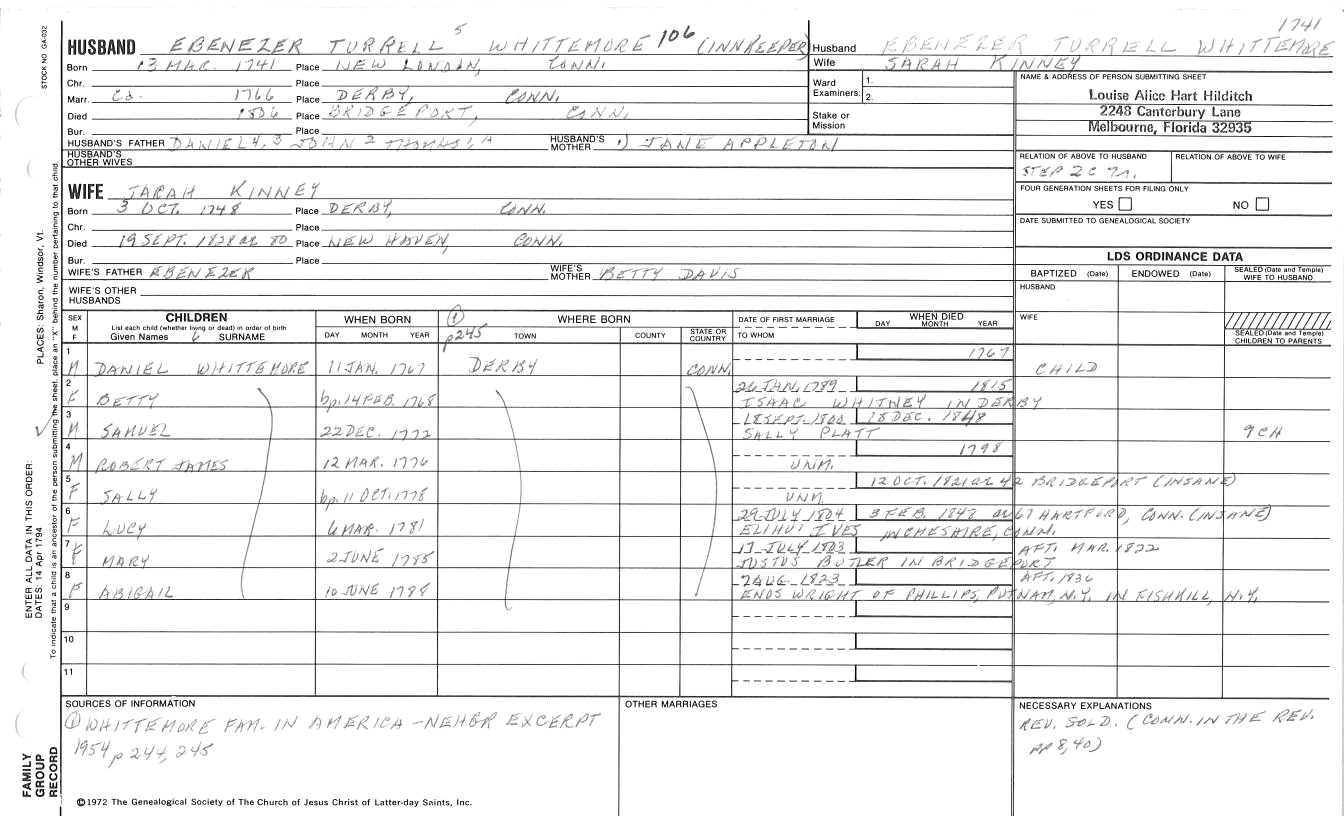 1741
STOCK NO. GA-032
HUSBAND EBENEZER TURRELL 5 WHITTEMORE 106 (INNKEEPER)
Husband EBENEZER TURRELL WHITTEMORE
Wife SARAH KINNEY
Born 13 MAR. 1741 Place NEW LONDON, CONN.
Chr. Place
Marr. Ca. 1766 Place DERBY, CONN.
Died 1806 Place BRIDGEPORT, CONN.
Bur. Place
Ward Examiners: 1. 2.
Stake or Mission
NAME & ADDRESS OF PERSON SUBMITTING SHEET
Louise Alice Hart Hilditch
2248 Canterbury Lane
Melbourne, Florida 32935
HUSBAND'S FATHER DANIEL 4, 3 JOHN 2 THOMAS 1, A HUSBAND'S MOTHER 1) JANE APPLETON
HUSBAND'S OTHER WIVES
RELATION OF ABOVE TO HUSBAND RELATION OF ABOVE TO WIFE
STEP 2C
FOUR GENERATION SHEETS FOR FILING ONLY
YES NO
DATE SUBMITTED TO GENEALOGICAL SOCIETY
WIFE SARAH KINNEY
Born 3 OCT. 1748 Place DERBY, CONN.
Chr. Place
Died 19 SEPT. 1828 ae 80 Place NEW HAVEN, CONN.
Bur. Place
WIFE'S FATHER EBENEZER WIFE'S MOTHER BETTY DAVIS
WIFE'S OTHER HUSBANDS
LDS ORDINANCE DATA
BAPTIZED (Date) ENDOWED (Date) SEALED (Date and Temple) WIFE TO HUSBAND
HUSBAND
WIFE
SEALED (Date and Temple) CHILDREN TO PARENTS
SEX M F
CHILDREN
List each child (whether living or dead) in order of birth
Given Names 6 SURNAME
WHEN BORN
DAY MONTH YEAR
① p245
WHERE BORN
TOWN COUNTY STATE OR COUNTRY
DATE OF FIRST MARRIAGE
TO WHOM
WHEN DIED
DAY MONTH YEAR
1 M DANIEL WHITTEMORE 11 JAN. 1767 DERBY CONN. 1767 CHILD
2 F BETTY bp. 14 FEB. 1768 26 JAN. 1789 1815
ISAAC WHITNEY IN DERBY
3 M SAMUEL 22 DEC. 1772 18 SEPT. 1800 18 DEC. 1848
SALLY PLATT 9 CH
4 M ROBERT JAMES 12 MAR. 1776 1798
UNM.
5 F SALLY bp. 11 OCT. 1778 12 OCT. 1821 ae 42 BRIDGEPORT (INSANE)
UNM
6 F LUCY 6 MAR. 1781 29 JULY 1804 3 FEB. 1848 ae 67 HARTFORD, CONN. (INSANE)
ELIHU IVES IN CHESHIRE, CONN.
7 F MARY 2 JUNE 1785 17 JULY 1803 AFT. MAR. 1822
JUSTUS BUTLER IN BRIDGEPORT
8 F ABIGAIL 10 JUNE 1788 7 AUG. 1823 AFT. 1836
ENOS WRIGHT OF PHILLIPS, PUTNAM, N.Y. IN FISHKILL, N.Y.
9
10
11
SOURCES OF INFORMATION
① WHITTEMORE FAM. IN AMERICA - NEHGR EXCERPT
1954 p 244, 245
OTHER MARRIAGES
NECESSARY EXPLANATIONS
REV. SOLD. (CONN. IN THE REV.
pp 8, 40)
©1972 The Genealogical Society of The Church of Jesus Christ of Latter-day Saints, Inc.
FAMILY GROUP RECORD
ENTER ALL DATA IN THIS ORDER:
DATES: 14 Apr 1794
PLACES: Sharon, Windsor, Vt.
To indicate that a child is an ancestor of the person submitting the sheet, place an "X" behind the number pertaining to that child.